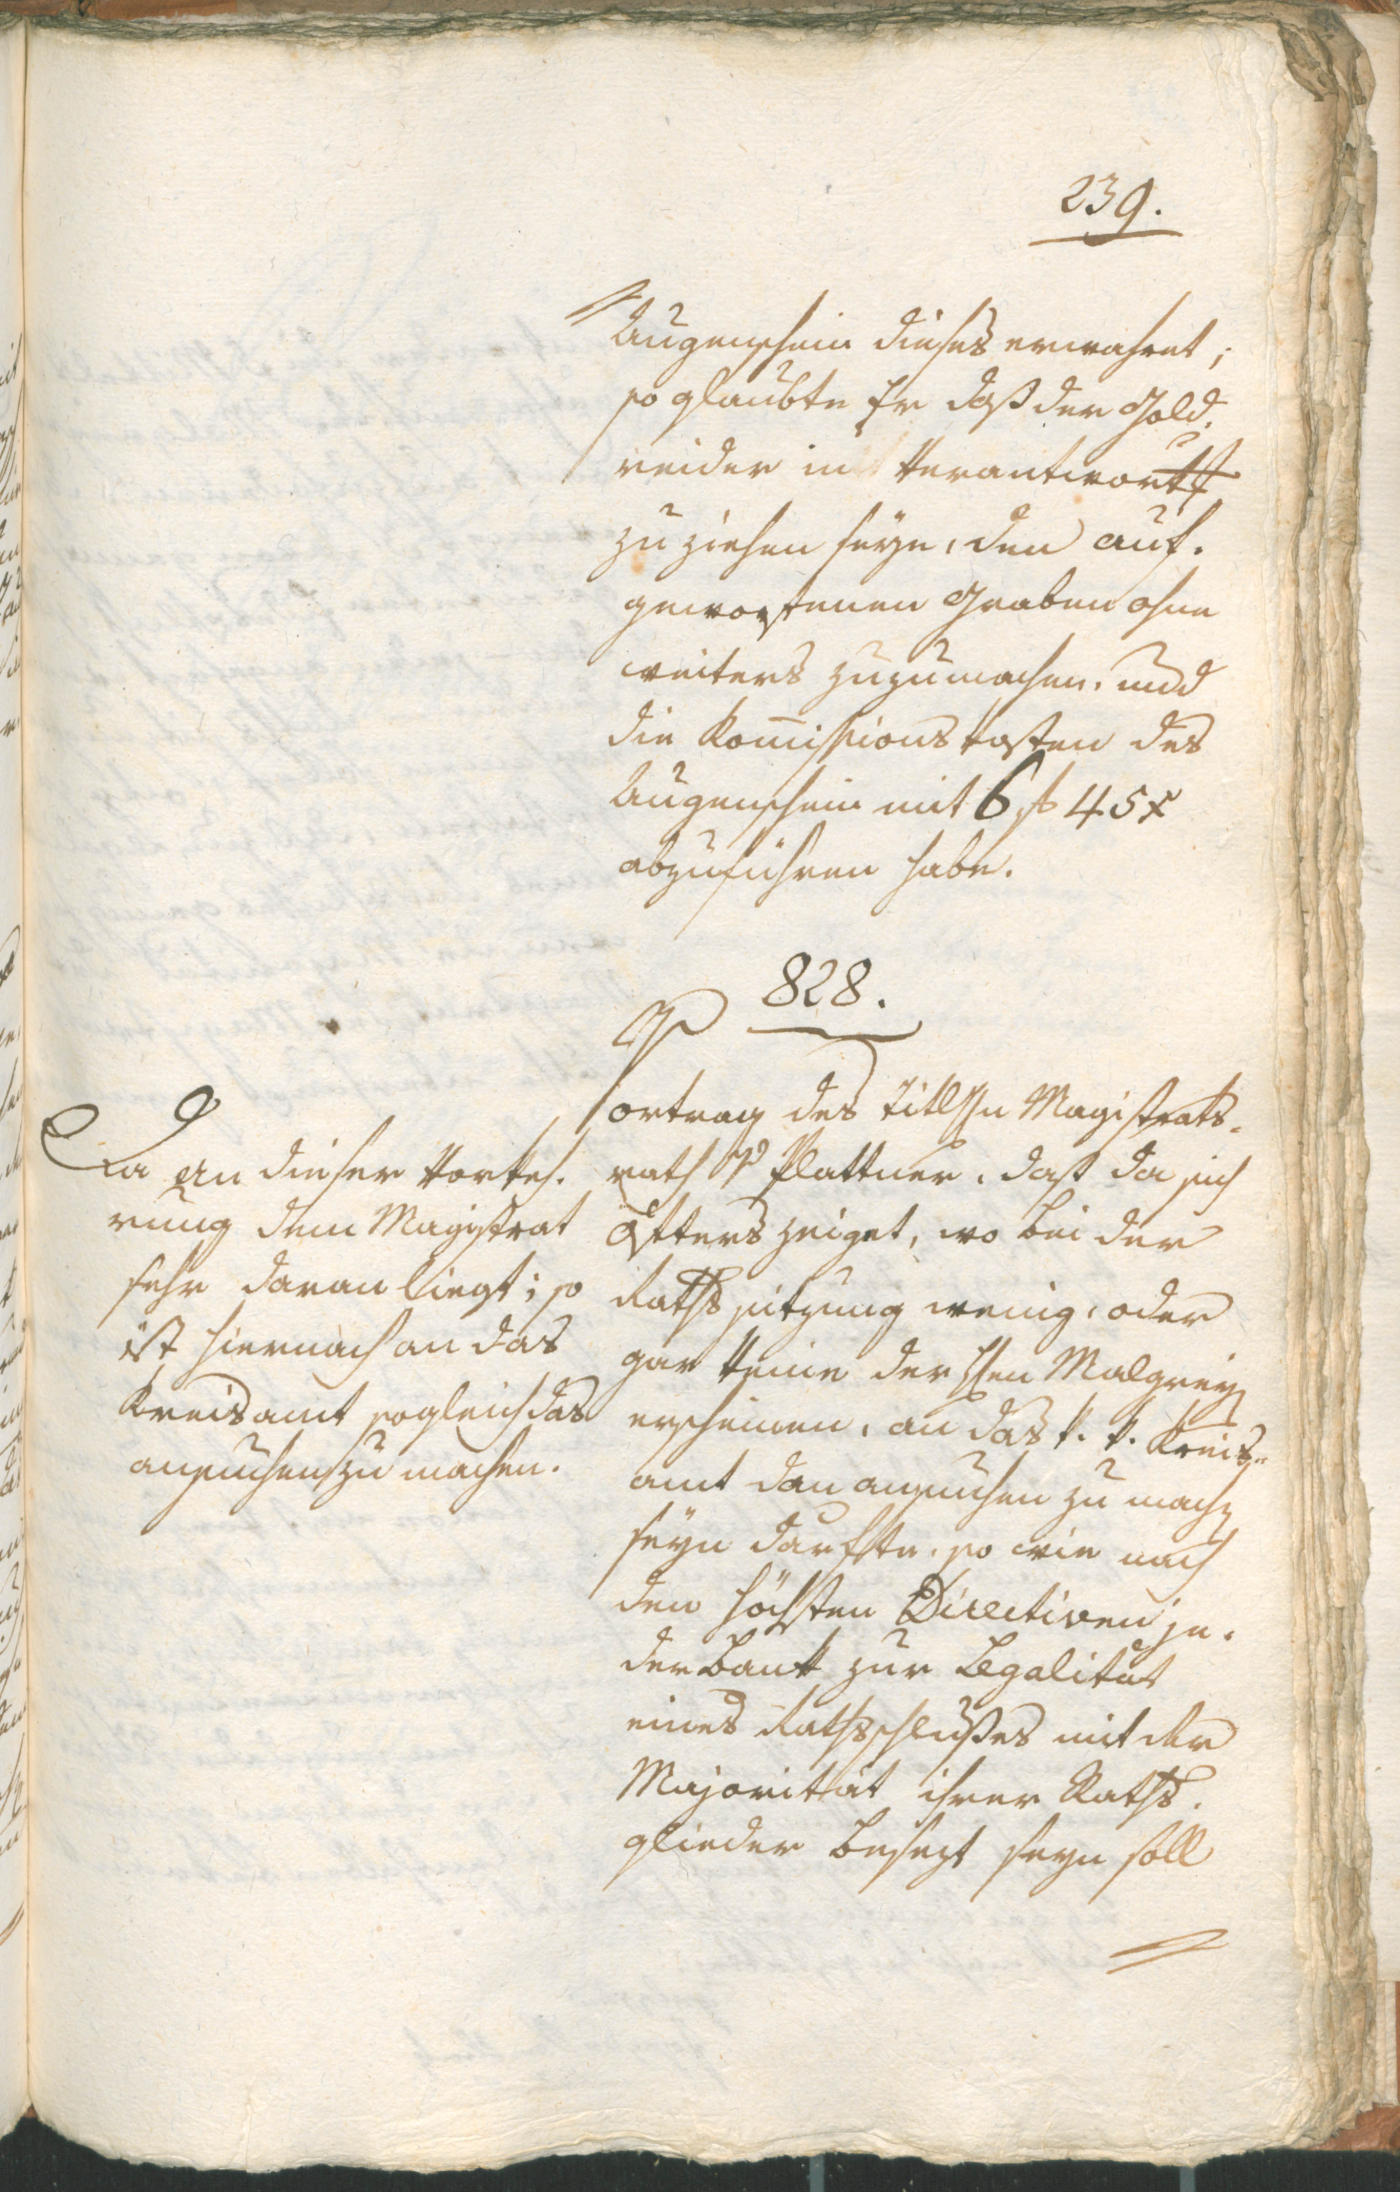 239.
Augenschein dieses erwahret;
so glaubte Er daß der Gold,
reider in Verantwortg
zu ziehen seye, den auf-
geworfenen Graben ohne
weiters zuzumachen, und
die Kom̅issions kosten des
Augenschein mit 6 f 45 x
abzuführen habe.
828.
Vortrag des Titl Hn Magistrats-
rath v Plattner, dass da sich
öfters zeiget, wo bei der
Raths sitzung wenig, oder
gar keine der Hhen Malgreyg
erscheinen, an das k. k. Kreis-
amt dan ansuchen zu machen
seyn darfte, so wie nach
den höchsten Directiven je-
der Bank zur Legalität
eines Rathsschlußes mit der
Majorität ihrer Raths-
glieder besezt seyn soll
Da an dieser Vorkeh-
rung dem Magistrat
sehr daran liegt; so
ist hiernach an das
Kreisamt sogleich das
ansuchen zu machen.